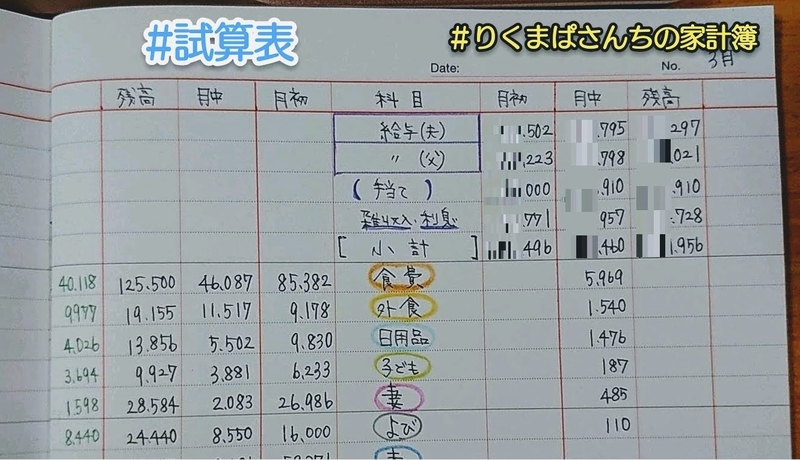 #試算表
#りくまぱさんちの家計簿
Date: No. 3月
残高 月中 月初 科目 月初 月中 残高
給与(夫) .502 .795 297
〃 (父) .223 .798 .021
(手当て) 000 .910 .910
雑収入・利息 .771 957 .728
[小計] 496 .460 1.956
40.118 125.500 46.087 85.382 食費 5.969
9977 19.155 11.517 9.178 外食 1.540
4.026 13.856 5.502 9.830 日用品 1.476
3.694 9.927 3.881 6.233 子ども 187
1598 28.584 2.083 26.986 妻 485
8.440 24.440 8.550 16.000 よび 110